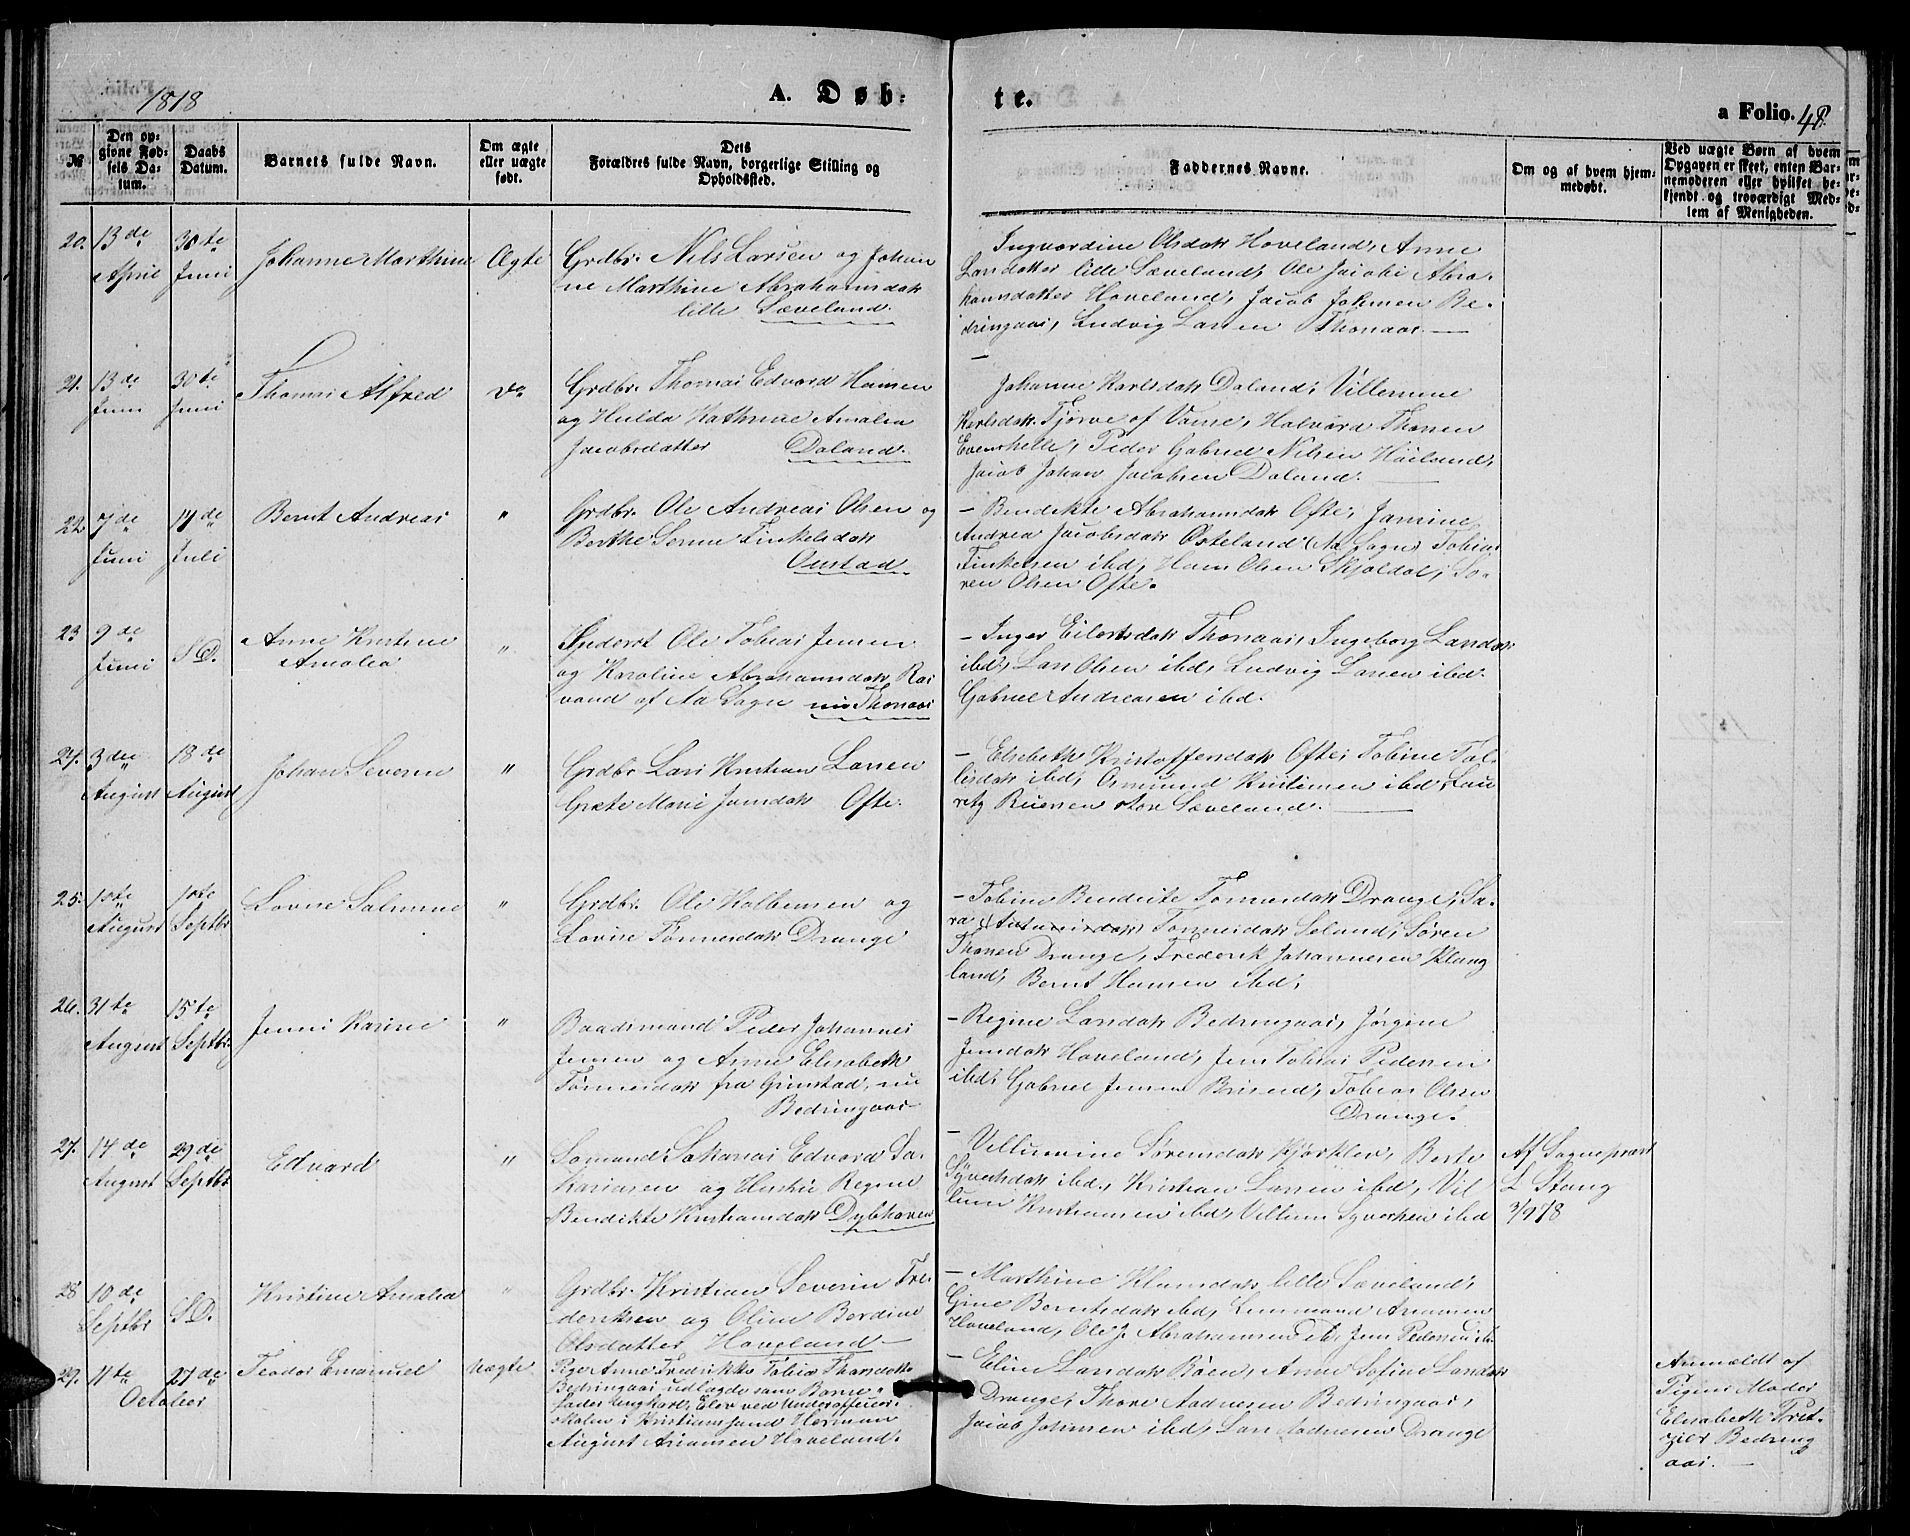 1878
A. Døb-
te.
a Folio. 48.
№
Den op-
givne Fød-
sels Da-
tum.
Daabs
Datum.
Barnets fulde Navn.
Om ægte
eller uægte
født.
Dets
Forældres fulde Navn, borgerlige Stilling og
Opholdssted.
Faddernes Navne.
Om og af hvem hjem-
medøbt.
Ved uægte Børn af hvem
Opgaven er skeet, enten Bar-
nemoderen eller hvilket be-
kjendt og troværdigt Med-
lem af Menigheden.
20.
13de
April
30te
Juni
Johanne Marthine
Ægte
Grdbr. Nils Larsen og Johan
ne Marthine Abrahamsdatr
lille Sæveland.
Ingvardine Olsdatr Hoveland, Anne
Larsdatter lille Sæveland, Ole Jacobi Abra-
hamsdatter Hoveland, Jacob Johnsen Be-
dringaas, Ludvig Larsen Thonaas.
21.
13de
Juni
30te
Juni
Thomas Alfred
do
Grdbr. Thomas Edvard Hansen
og Hulda Kathrine Amalia
Jacobsdatter Daland.
Johanne Karlsdatr Daland, Villemine
Karlsdatr Tjørve af Vanse, Halvård Thorsen
Evenshelle, Peder Gabriel Nilsen Høiland,
Jacob Johan Jacobsen Daland.
22
7de
Juni
14de
Juli
Bernt Andreas
"
Grdbr. Ole Andreas Olsen og
Berthe Serine Finkelsdatr
Ourstad
– Bendikte Abrahamsdatr Ofte, Jamine
Andrea Jacobsdatr Østeland (Aa Sogn) Tobias
Finkelsen ibd, Hans Olsen Skjoldal, Sø-
ren Olsen Ofte.
23
9de
Juni
S.D.
Anne Kristine
Amalia
"
Ole Tobias Jensen
og Karoline Abrahamsdatr Ros
vand af Aa Sogn nu Thonaas
– Inger Eilertsdatr Thonaas, Ingeborg Larsdatr
ibd, Lars Olsen ibd, Ludvig Larsen ibd.
Gabriel Andreasen ibd.
24.
3die
August
18de
August
Johan Severin
"
Grdbr Lars Kristian Larsen
Grete Marie Jansdatr Ofte.
– Elisabeth Kristoffersdatr Ofte, Tobine Tol-
lisdatr ibd, Osmund Kristensen ibd, Lau
ritz Reiersen store Sæveland.
25.
1ste
August
1ste
Septbr
Lovise Salmine
"
Grdbr. Ole Kolbensen og
Lovise Tønnesdatr Drange
– Tobine Bendicte Tønnesdatr Drange, Sa-
ra Tønnesdatr Seland, Søren
Thorsen Drange, Frederik Johannesen Klung
land, Bernt Hansen ibd,
26.
31te
August
15te
Septbr.
Jenni Karine
"
Baadsmand Peder Johannes
Jensen og Anne Elisabeth
Tønnesdatr fra Grimstad, nu
Bedringaas
– Regine Larsdatr Bedringaas, Jørgine
Jensdatr Hoveland, Jens Tobias Pedersen
ibd, Gabriel Jensen Briseid, Tobias Olsen
Drange.
27.
14de
August
29de
Septbr
Edvard
"
Sømand Sakarias Edvard Sa-
kariasen og Regine
Bendikte Kristiansdatr Dybhaven
– Vellumine Sørensdatr Kjørklev, Berte
Syvertsdatr ibd., Kristian Larsen ibd, Vil
lum Kristiansen ibd, Villum Syvertsen ibd
Af Sogneprest
L Stang
3/9 78
28
10de
Septbr
S.D.
Kristine Amalia
"
Grdbr. Kristian Severin Fre-
deriksen og Oline Berdine
Olsdatter Hoveland
– Marthine Klemsdatr lille Sæveland,
Gine Berntsdatr ibd, Linmand Ariansen
Hoveland, Ole J. Abrahamsen ib, Jens Pedersen ib.
29.
11te
October
27de
Teodor Emanuel
Uægte
Pige Anne Fredrikke Tobia Tharsdatr
Bedringaas, udlagde som Barne-
fader Ungkarl, Elev ved Underofficers
skolen i Kristianssand Herman
August Ariansen Hoveland.
– Eline Larsdatr Røen, Anne Sofine Larsdatr
Drange, Thore Aadnesen Bedringaas,
Jacob Johnsen ibd, Lars Aadnesen Drange
Anmeldt af
Pigens Moder
Elisabeth Fret-
zier Bedring
aas.